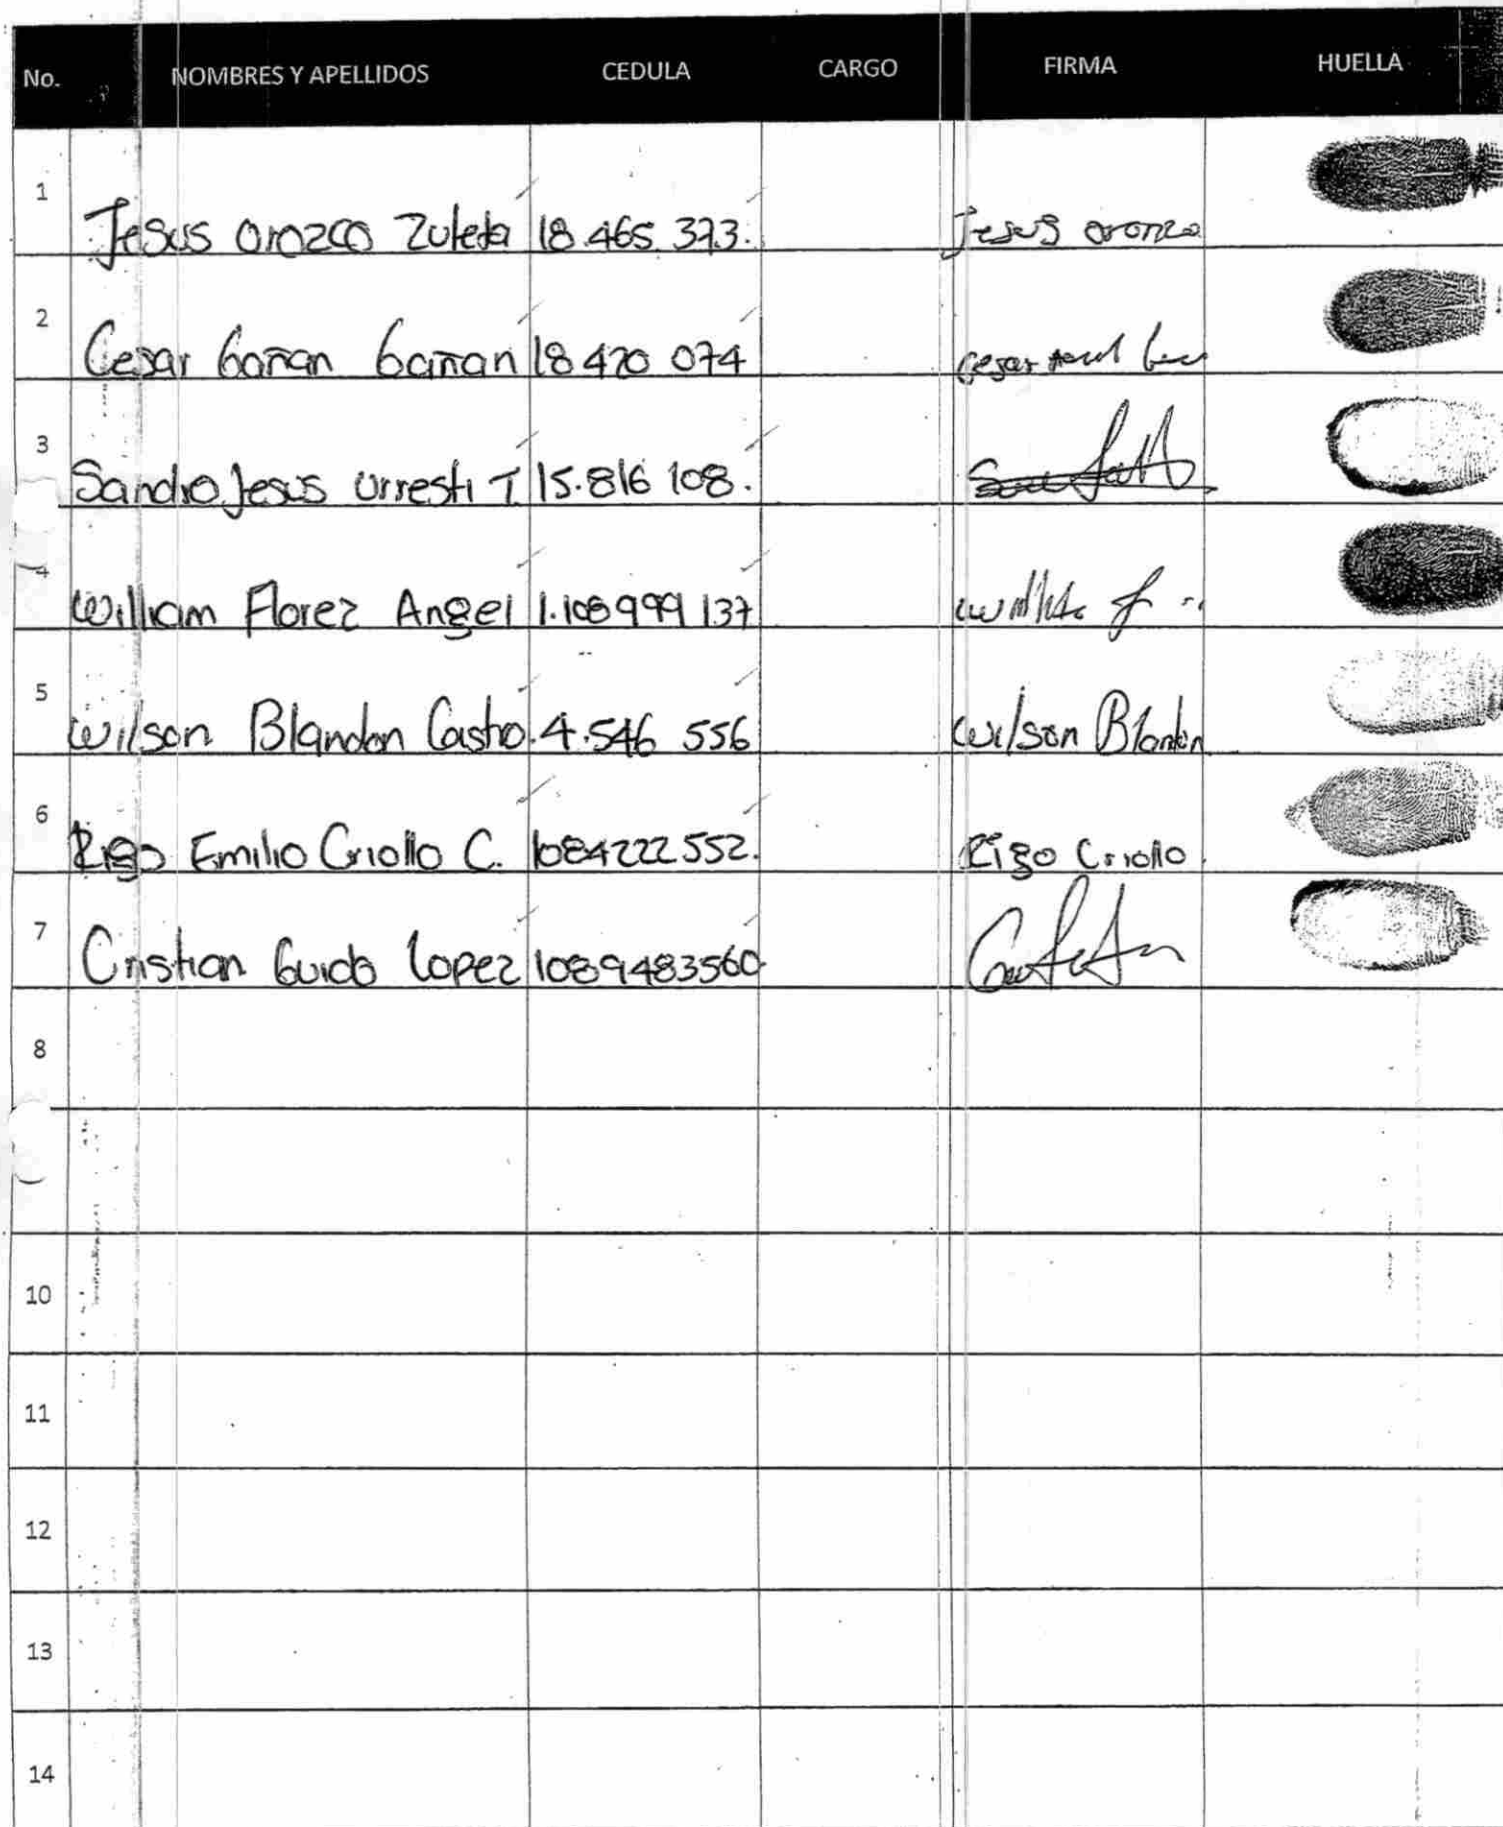 No. NOMBRES Y APELLIDOS CEDULA CARGO FIRMA HUELLA
1 Jesus Orozco Zuleta 18.465.373. Jesus Oronzo
2 Cesar Gañan Gañan 18 420 074 Cesar
3 Sandro Jesus Urresti T 15.816 108.
4 William Florez Angel 1.108 999 137
5 Wilson Blandon Castro. 4.546 556 Wilson Blandon
6 Rigo Emilio Criollo C. 1084222552. Rigo Criollo
7 Cristian Guido Lopez 1089483560
8
10
11
12
13
14